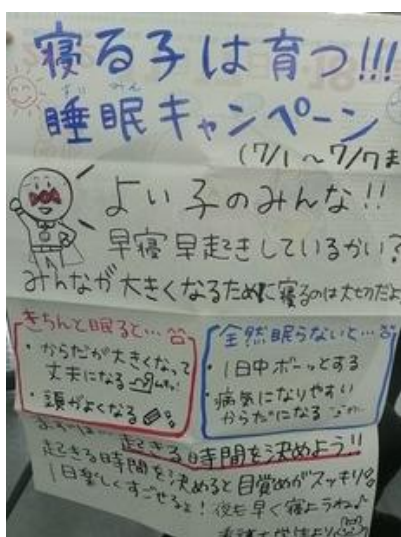 寝る子は育つ!!!
すい みん
睡眠キャンペーン
(7/1~7/7ま
よい子のみんな!!
早寝早起きしているかい?
みんなが大きくなるために寝るのは大切だよ
きちんと眠ると…
・からだが大きくなって
丈夫になる
・頭がよくなる
全然眠らないと…
・1日中ボーッとする
・病気になりやすい
からだになる
まずは…起きる時間を決めよう!!
起きる時間を決めると目覚めがスッキリ
1日楽しくすごせるよ!夜も早く寝ようね♪
看護大学生より